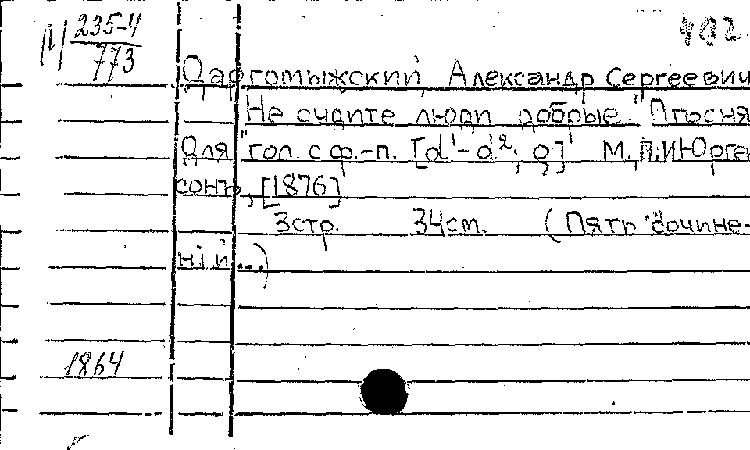 М 235-4
773
Даргомыжский, Александр Сергеевич
"Не судите люди добрые." Пѣсня
для гол. с ф.-п. [d¹-d²; g] М., П. Юрген
сонъ, [1876]
3стр. 34см. (Пять сочине-
ній...)
1864